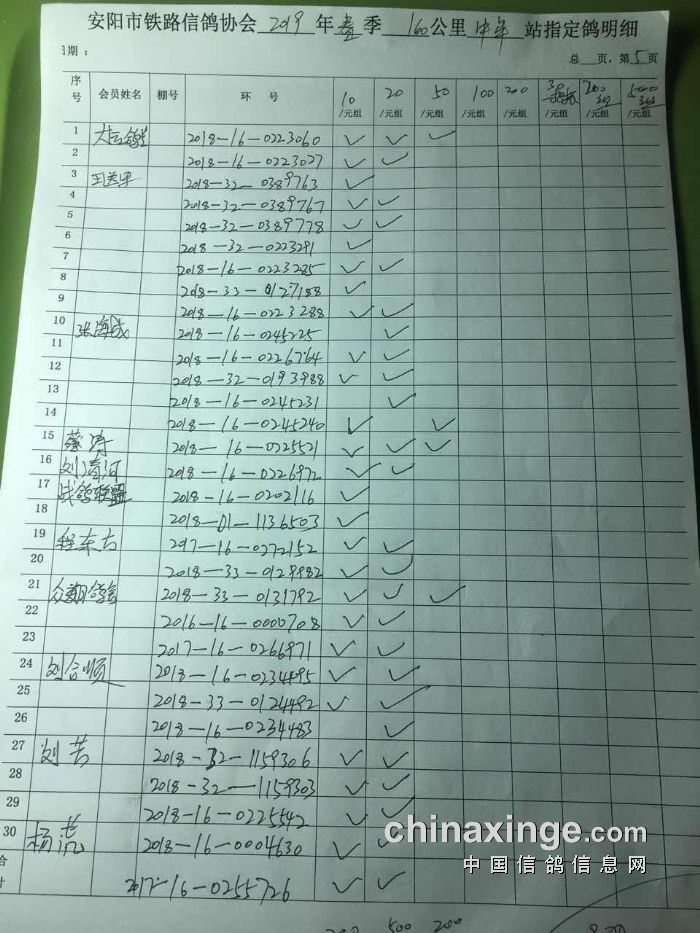 安阳市铁路信鸽协会 2019 年 春 季 160 公里 中年 站指定鸽明细
日期： 总 页，第 5 页
序号 会员姓名 棚号 环 号 10/元组 20/元组 50/元组 100/元组 200/元组 /元组 /元组 /元组
1 2018-16-0223060 ✓ ✓ ✓
2 2018-16-0223027 ✓ ✓
3 2018-32-0389763 ✓
4 2018-32-0389767 ✓ ✓
5 2018-32-0389778 ✓ ✓
6 2018-32-0223291 ✓
7 2018-16-0223285 ✓ ✓
8 2018-33-0127188 ✓
9 2018-16-0223288 ✓ ✓
10 张海成 2018-16-0245225 ✓
11 2018-16-0226764 ✓ ✓
12 2018-32-0193988 ✓ ✓
13 2018-16-0245231 ✓
14 2018-16-0245240 ✓ ✓
15 蔡涛 2018-16-0225521 ✓ ✓ ✓
16 刘清河 2018-16-0226972 ✓ ✓
17 战鸽联盟 2018-16-0202116 ✓
18 2018-01-1136503 ✓
19 程东方 2017-16-0272152 ✓ ✓
20 2018-33-0129982 ✓ ✓
21 众翔鸽舍 2018-33-0131792 ✓ ✓ ✓
22 2016-16-0000708 ✓ ✓
23 2017-16-0266971 ✓ ✓
24 刘合顺 2018-16-0234495 ✓ ✓
25 2018-33-0124492 ✓ ✓
26 2018-16-0234483 ✓
27 刘芳 2018-32-1159306 ✓ ✓
28 2018-32-1159303 ✓
29 2018-16-0225542 ✓ ✓
30 杨 2018-16-0004630 ✓ ✓
合计 2017-16-0255726 ✓ ✓
500 200
chinaxinge.com
中国信鸽信息网